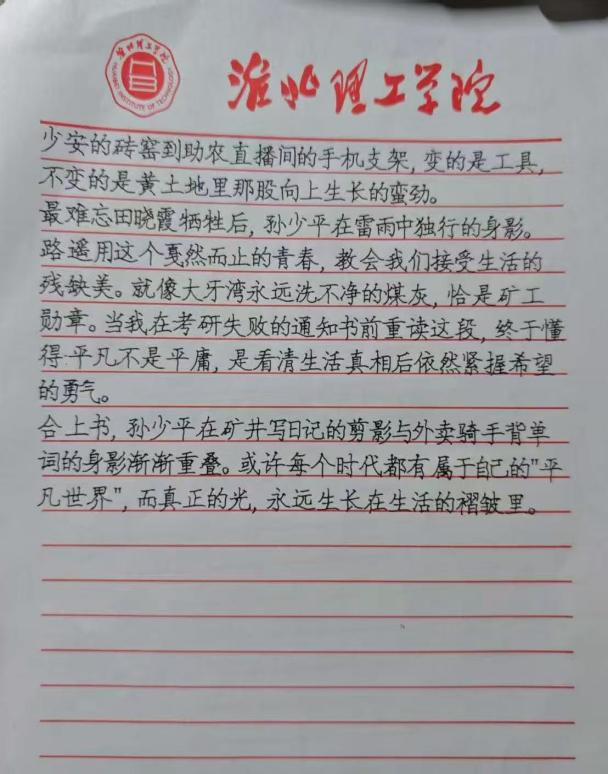 淮北理工学院
HUAIBEI INSTITUTE OF TECHNOLOGY
淮北理工学院
少安的砖窑到助农直播间的手机支架,变的是工具,
不变的是黄土地里那股向上生长的蛮劲。
最难忘田晓霞牺牲后,孙少平在雷雨中独行的身影。
路遥用这个戛然而止的青春,教会我们接受生活的
残缺美。就像大牙湾永远洗不净的煤灰,恰是矿工
勋章。当我在考研失败的通知书前重读这段,终于懂
得:平凡不是平庸,是看清生活真相后依然紧握希望
的勇气。
合上书,孙少平在矿井写日记的剪影与外卖骑手背单
词的身影渐渐重叠。或许每个时代都有属于自己的"平
凡世界",而真正的光,永远生长在生活的褶皱里。